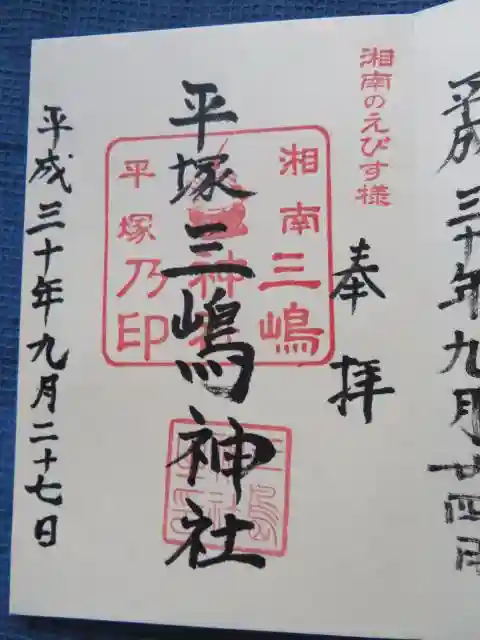 平成三十年九月廿四日
湘南のえびす様
奉拝
平塚三嶋神社
湘南三嶋
神社
平塚乃印
平成三十年九月二十七日